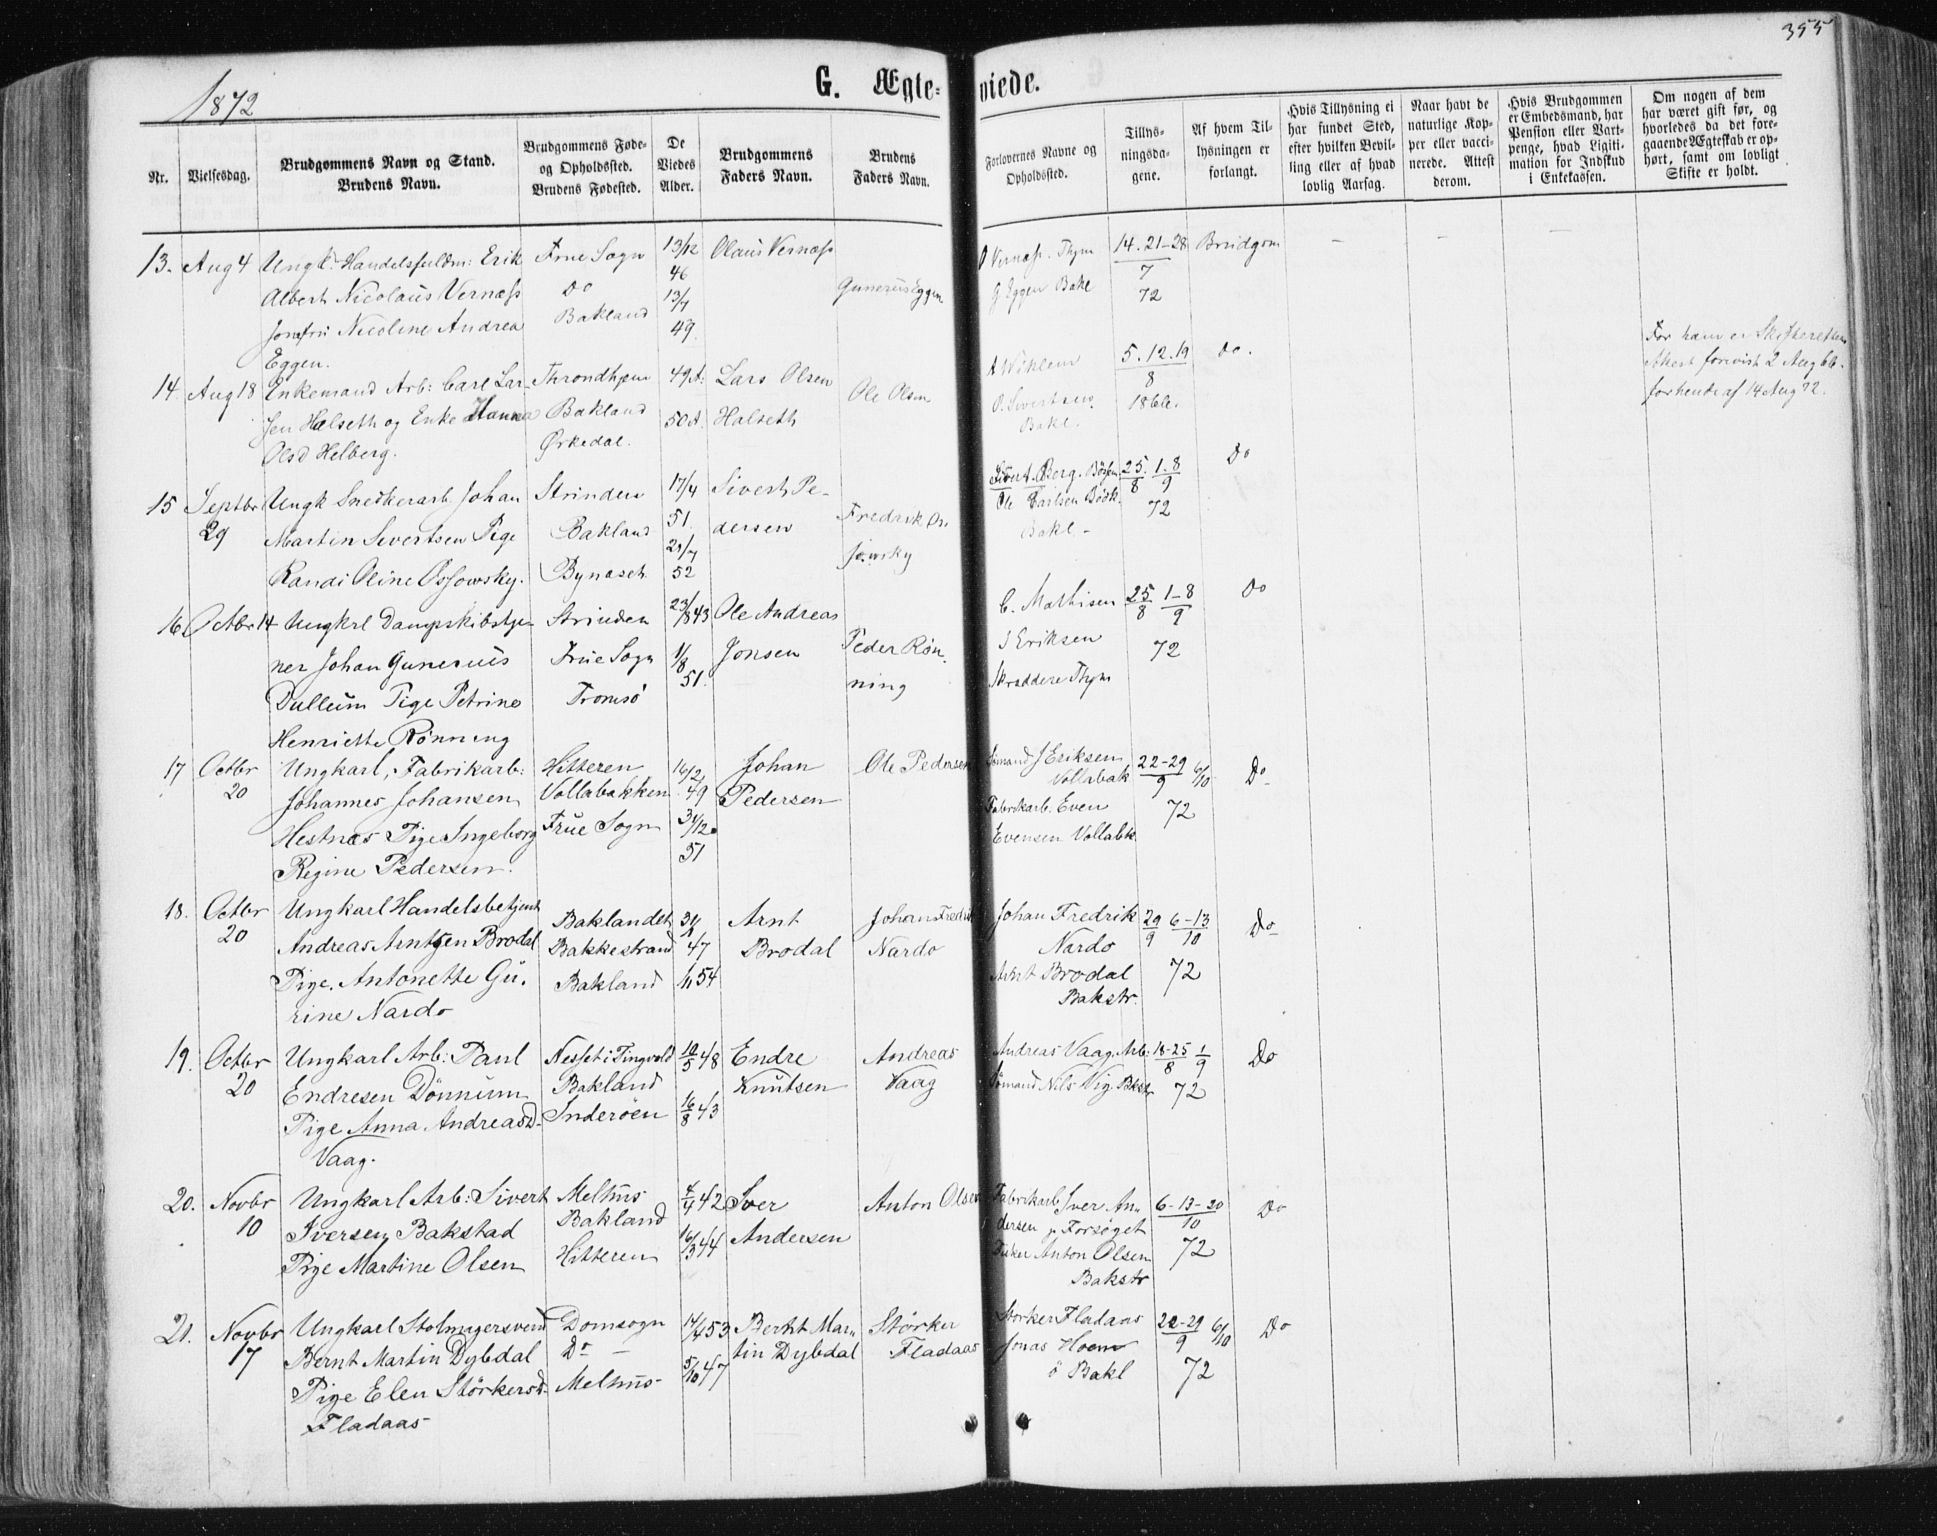 355
1872
G. Ægteviede.
Nr.
Vielsesdag.
Brudgommens Navn og Stand.
Brudens Navn.
Brudgommens Føde-
og Opholdssted.
Brudens Fødested.
De
Viedes
Alder.
Brudgommens
Faders Navn.
Brudens
Faders Navn.
Forlovernes Navne og
Opholdssted.
Tillys-
ningsda-
gene.
Af hvem Til-
lysningen er
forlangt.
Hvis Tillysning ei
har fundet Sted,
efter hvilken Bevil-
ling eller af hvad
lovlig Aarsag.
Naar havt de
naturlige Kop-
per eller vacci-
nerede. Attest
derom.
Hvis Brudgommen
er Embedsmand, har
Pension eller Vart-
penge, hvad Ligiti-
mation for Indskud
i Enkekassen.
Om nogen af dem
har været gift før, og
hvorledes da det fore-
gaaende Ægteskab er op-
hørt, samt om lovligt
Skifte er holdt.
13. Aug 4 Ungk: Handelsfuldm: Erik
Albert Nicolaus Vernæss
Nicoline Andrea
Eggen.
Frue Sogn
Do
Bakland
13/12
46
13/7
49
Olaus Vernæss
Gunerus Eggen
O Vernæss. Thjm
G Eggen Bakl
14. 21-28
7
72
Brudgom
14 Aug 18 Enkemand Arb: Carl Lar-
sen Halseth og Enke Hanna
Olsd Helberg.
Throndhjem
Bakland
Ørkedal.
49 A:
50 A.
Lars Olsen
Halseth
Ole Olsen
O. Sivertsen
Bakl.
5. 12. 19
8
do.
For ham er Skifteretten
Attest forevist 2 Aug 66.
for hende af 14 Aug 72.
15 Septbr
29
Ungk Snedkerarb. Johan
Martin Sivertsen Pige
Randi Oline Ossowsky.
Strinden
Bakland
Bynæset
17/4
51.
29/7
52
Sivert Pe-
dersen
Fredrik Os-
sowsky
Sivert Berg.
Ole Carlsen
Bakl -
25. 1-8
8 9
72
Do
16. Octbr 14 Ungkrl Dampskibstje-
ner Johan Gunerius
Dullum Pige Petrine
Henriette Rönning
Strinden
Frue Sogn
Tromsø
23/8 43
1/8
51.
Ole Andreas
Jonsen
Peder Røn-
ning
C. Mathisen
J Eriksen
Skræddere Thjm
25 1-8
8 9
72
Do
17 Octbr
20
Ungkarl, Fabrikarb:
Johannes Johansen
Hestnæs Pige Ingeborg
Regine Pedersen.
Hitteren
Vollabakken
Frue Sogn
16/2
49
31/12
51
Johan
Pedersen
Ole Pedersen
Sømand J Eriksen
Vollabak
Fabrikarb. Even
Evensen Vollabk
22-29 6/10
9
72
Do
18. Octbr
20
Ungkarl Handelsbetjent
Andreas Arntsen Brodal
Pige. Antonette Gu-
rine Nardo
Baklandet
Bakkestrand
Bakland
47
54
Arnt
Brodal
Johan Fredrik
Nardo
Johan Fredrik
Nardo
Arnt Brodal
Bakstr.
29 6-13
9 10
72
Do
19. Octbr
20
Ungkarl Arb: Paul
Endresen Dönnum
Pige Anna Andreasd-
Vaag.
Nesset i Tingvold
Bakland
Inderöen
10/5 48
16/8 43
Endre
Knutsen
Andreas
Vaag
Andreas Vaag Arb:
Sømand Nils Vig. Bkstr
18-25 1
8 9
72
Do
20. Novbr
10
Ungkarl Arb: Sivert
Iversen Bakstad
Pige Martine Olsen
Melhus
Bakland
Hitteren
4/4 42
16/3 44
Iver
Andersen
Anton Olsen
Fabrikarb Iver An-
dersen p Forsøget
Anton Olsen
Bakstr
6-13-20
10
72
Do
21. Novbr
17
Ungkarl Stolmagersvend
Bernt Martin Dybdal
Pige Elen Störkersd-
Fladaas
Domsogn
Do -
Melhus
14/4 53
5/10 47
Berht Mar-
tin Dybdal
Störker
Fladaas
Storker Fladaas
Jonas Hoem
Bakl
22-29 6/10
9
72
Do